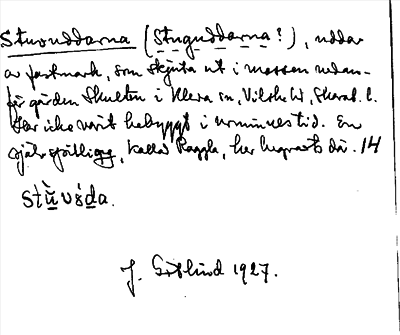 Stuvuddarna (Stuguddarna?), uddar
av fastmark, som skjuta ut i mossen nedan-
för gården Skulten i Kleva sn, Vilske hd, Skarab. l.
Har icke varit bebyggt i mannaminnes tid. En
, kallad Raggla, har begravts där. 14
stùvúda.
J. Götlind 1927.